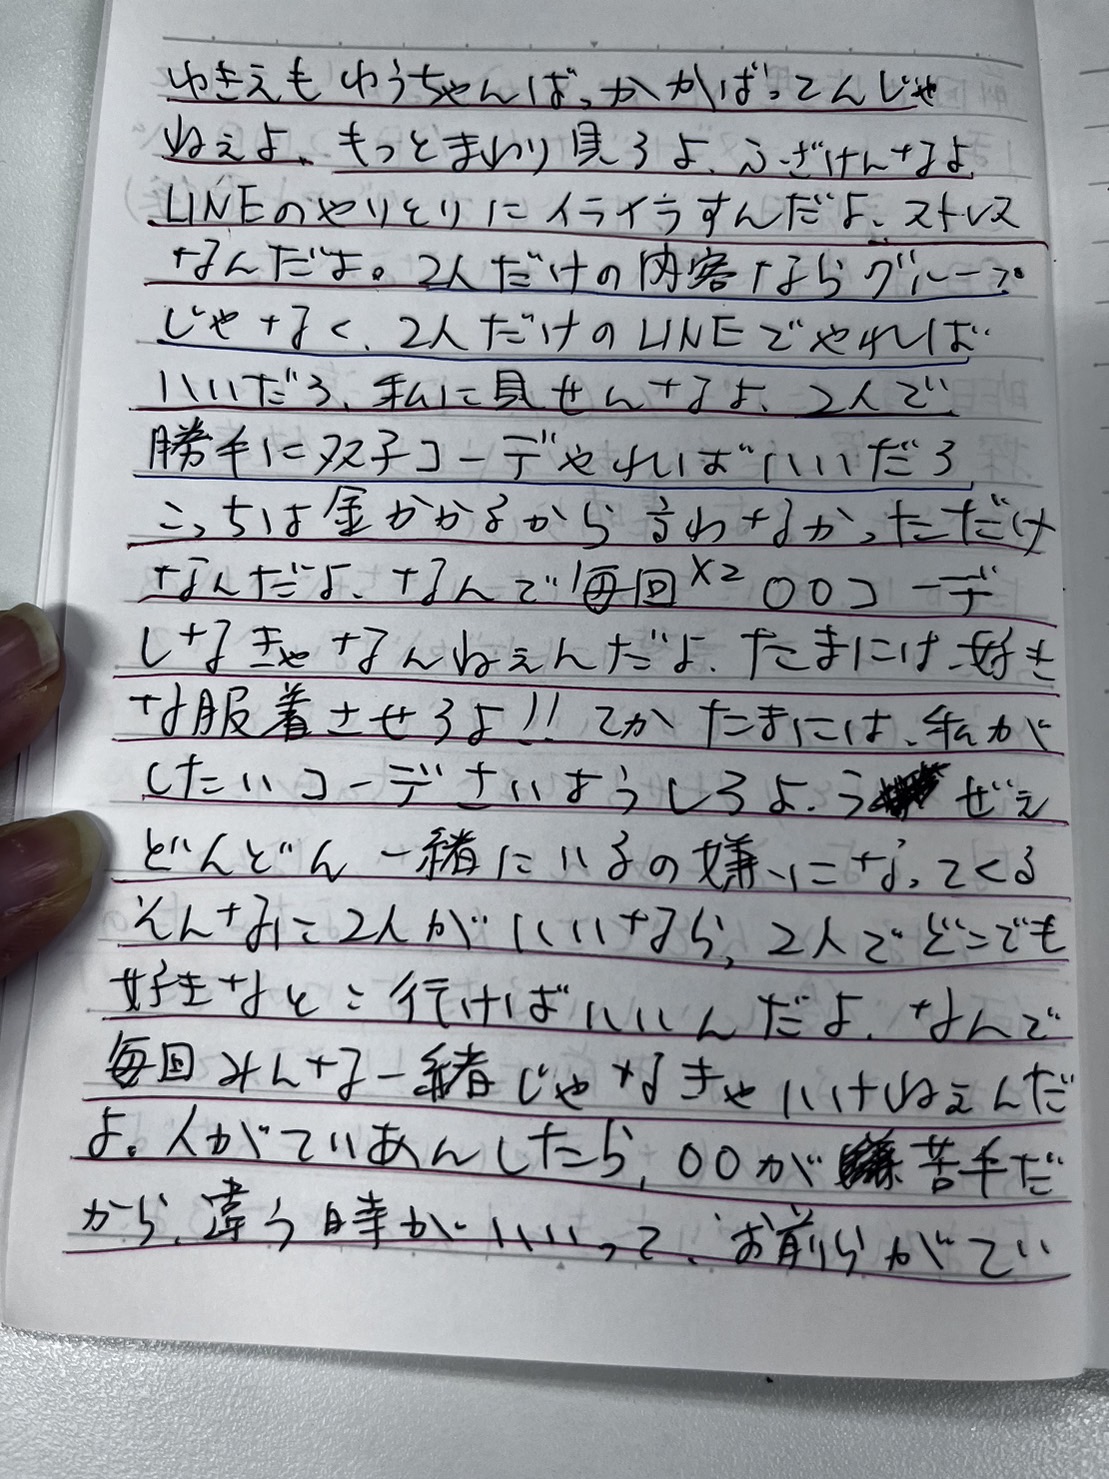 ゆきえもゆうちゃんばっかかばってんじゃ
ねぇよ、もっとまわり見ろよ、ふざけんなよ
LINEのやりとりにイライラすんだよ、ストレス
なんだよ。2人だけの内容ならグループ
じゃなく、2人だけのLINEでやれば
いいだろ、私に見せんなよ、2人で
勝手に双子コーデやればいいだろ
こっちは金かかるから言わなかっただけ
なんだよ、なんで毎回×2 〇〇コーデ
しなきゃなんねぇんだよ、たまには、好き
な服着させろよ!! てかたまには、私が
したいコーデさいようしろよ、う ぜぇ
どんどん一緒にいるの嫌いになってくる
そんなに2人がいいなら、2人でどこでも
好きなとこ行けばいいんだよ、なんで
毎回みんな一緒じゃなきゃいけねぇんだ
よ。人がていあんしたら、〇〇が 苦手だ
から、違う時がいいって、お前らがてい